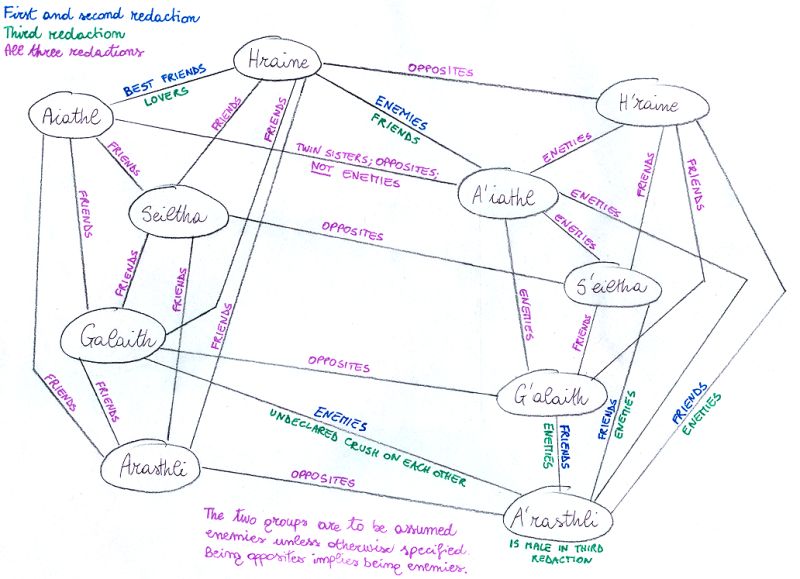 First and second redaction
Third redaction
All three redactions
Hraine
OPPOSITES
H'raine
BEST FRIENDS
LOVERS
Aiathl
FRIENDS
FRIENDS
ENEMIES
FRIENDS
ENEMIES
FRIENDS
TWIN SISTERS; OPPOSITES;
NOT ENEMIES
A'iathl
FRIENDS
FRIENDS
ENEMIES
ENEMIES
Seiltha
OPPOSITES
S'eiltha
FRIENDS
FRIENDS
FRIENDS
FRIENDS
ENEMIES
FRIENDS
Galaith
OPPOSITES
G'alaith
FRIENDS
FRIENDS
ENEMIES
UNDECLARED CRUSH ON EACH OTHER
FRIENDS
ENEMIES
FRIENDS
ENEMIES
FRIENDS
ENEMIES
Arasthli
OPPOSITES
A'rasthli
IS MALE IN THIRD
REDACTION
The two groups are to be assumed
enemies unless otherwise specified.
Being opposites implies being enemies.